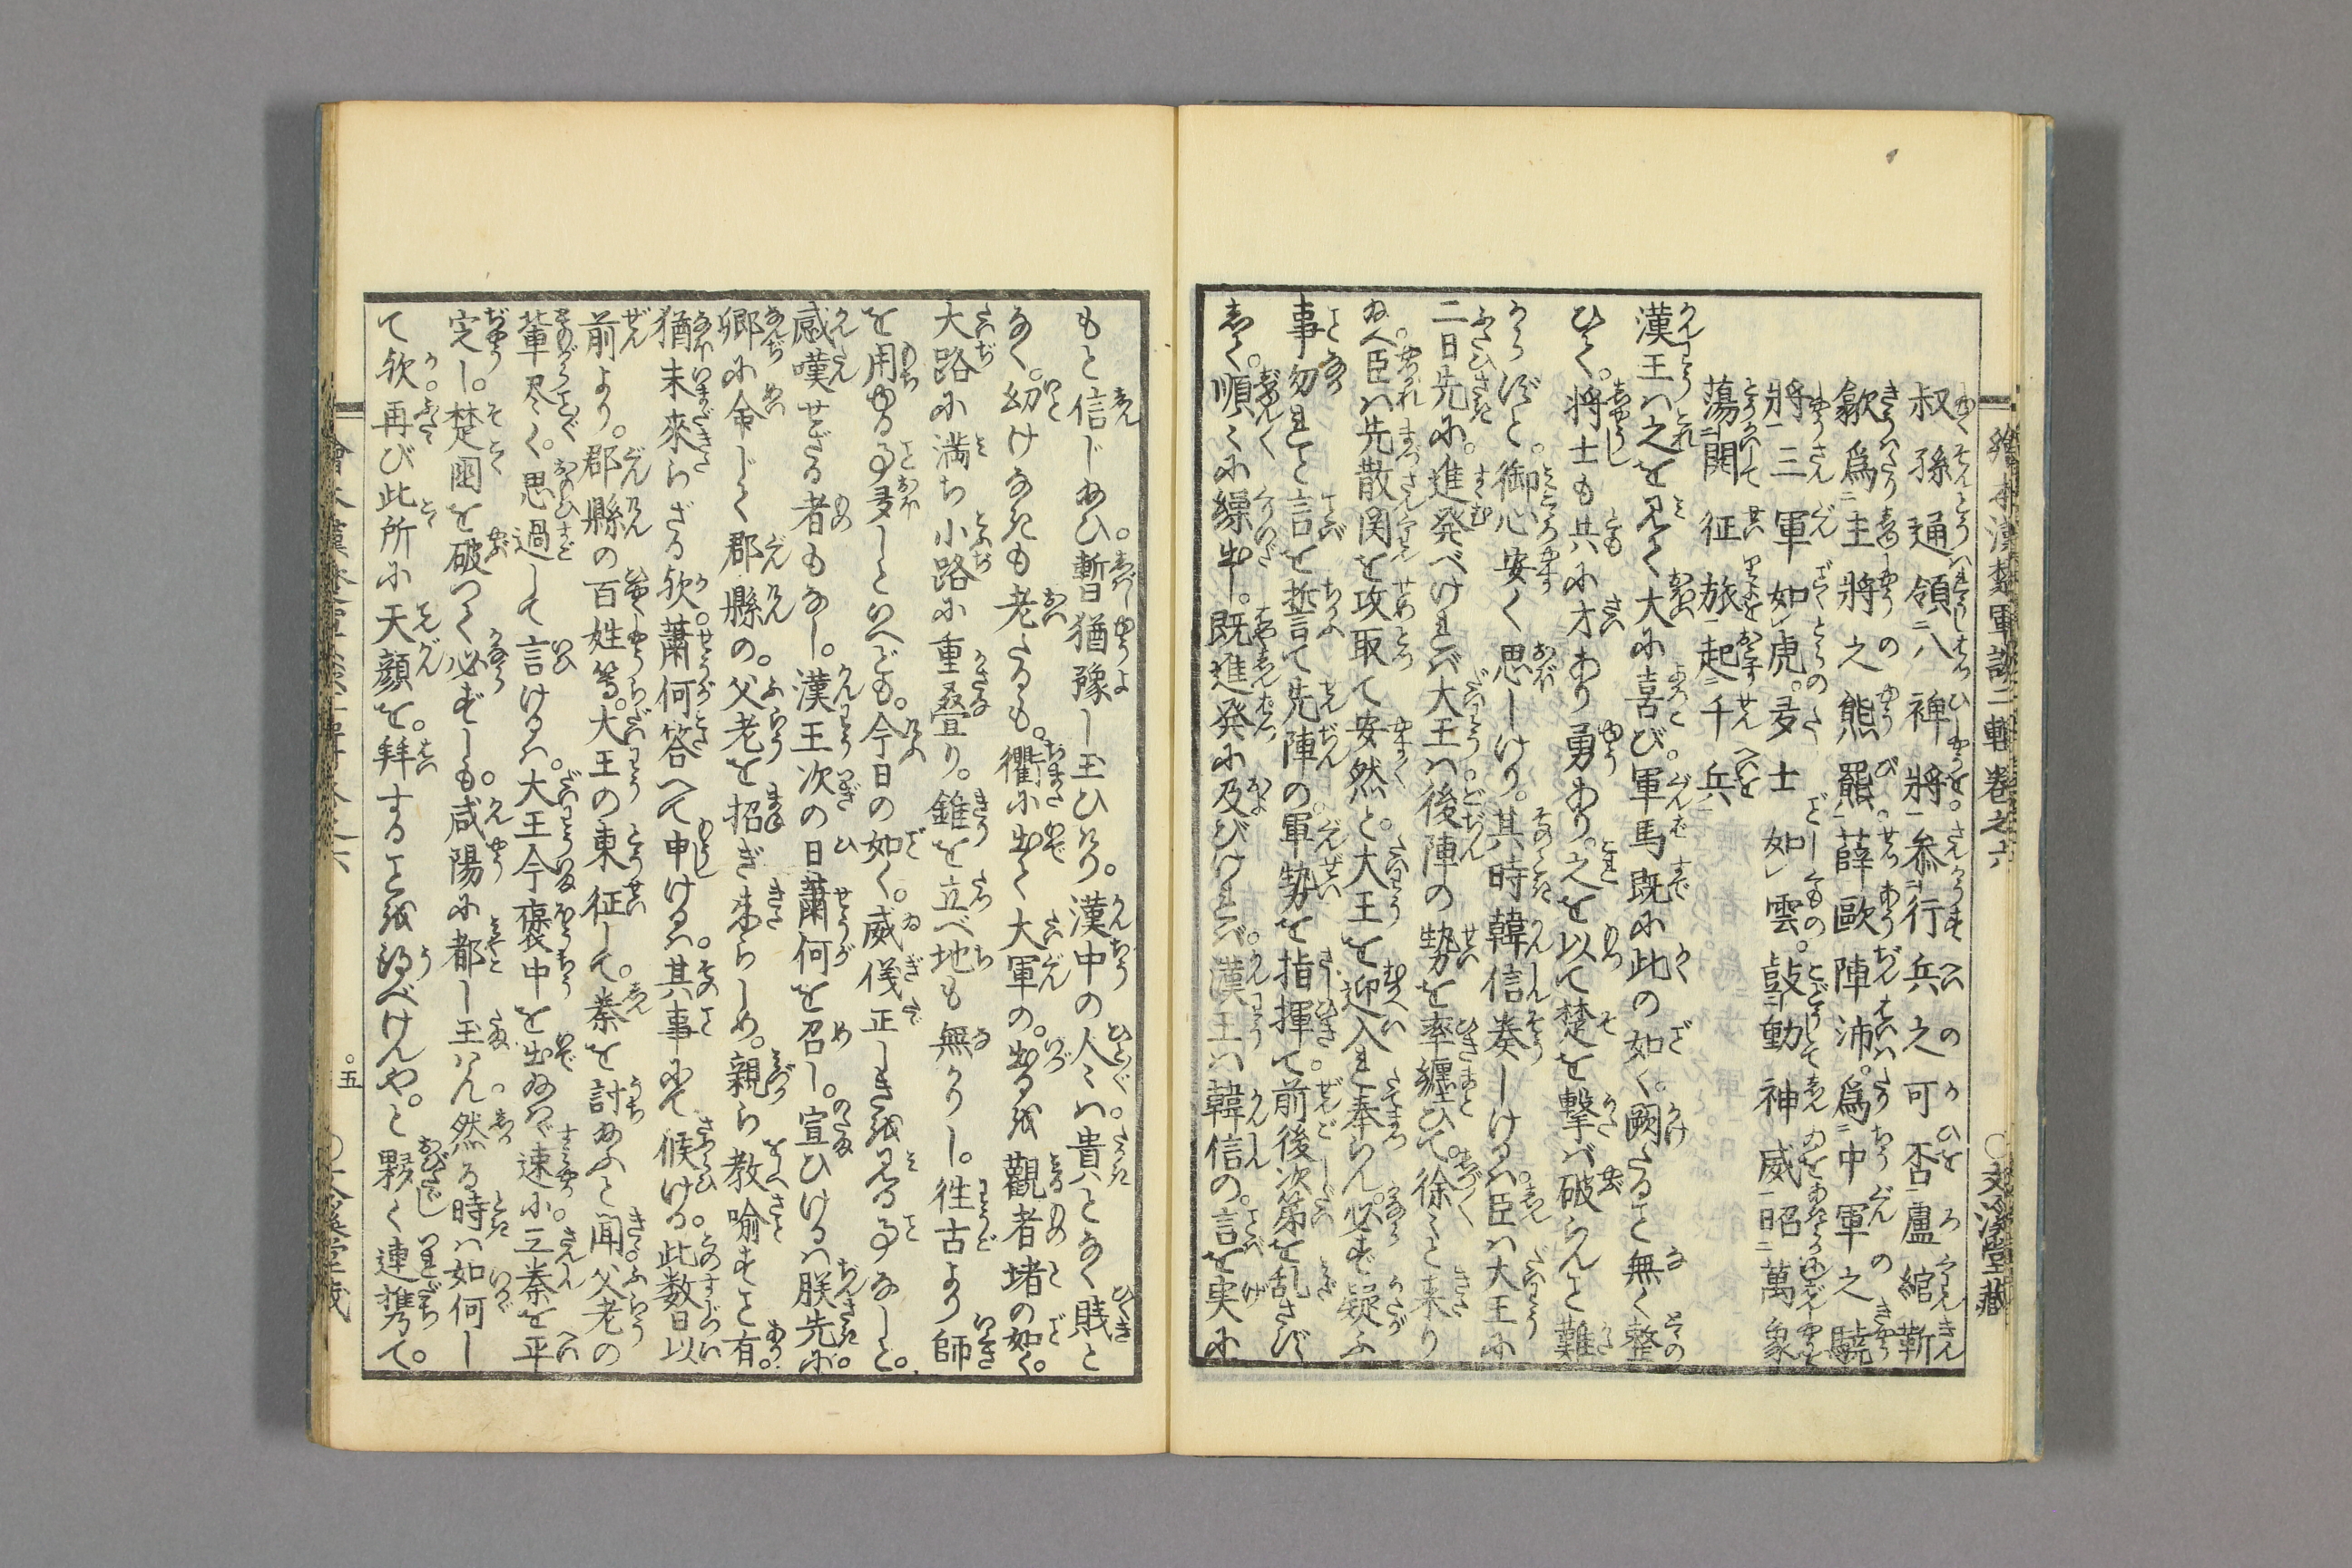 繪本漢楚軍談二輯卷之六 ○文溪堂藏
叔孫通領八裨將参行兵之可否盧綰靳
歙爲主將之熊羆薛歐陳沛爲中軍之驍
將三軍如虎。多士如雲。鼓動神威昭萬象
蕩開征旅起千兵
漢王ハ之を見て大に喜び。軍馬既に此の如く。闕たること無く整
ひて。将士も共に才あり勇あり。之を以て楚を撃バ破らんこと難
からずと。御心安く思しけり。其時韓信奏しけるハ。臣ハ大王に
二日先に。進発べけれバ大王ハ後陣の勢を率纏ひて。徐々と来り
給へ。臣ハ先散関を攻取て安然と。大王を迎入れ奉らん。必ず疑ふ
事勿れと言を誓て先陣の。軍勢を指揮て。前後次第を乱さず
しく。順々に繰出し。既進発に及びけれバ。漢王ハ韓信の。言を実に
もと信じ給ひ。暫猶豫し玉ひけり。漢中の人々ハ。貴となく賎と
なく。幼けなきも老たるも。衢に出て大軍の。出るを觀者堵の如く。
大路に満ち小路に重畳り。錐を立べ地も無かりし。徃古より師
を用ゆる事多しといへども。今日の如く。威儀正しきを見る事なしと。
感嘆せざる者もなし。漢王次の日蕭何を召し。宣ひけるハ朕先に。
卿に命じて郡縣の。父老を招ぎ来らしめ。親ら教喻すこと有。
猶未來らざる欤。蕭何答へて申けるハ。其事にて候ける。此数日以
前より。郡縣の百姓等。大王の東征して。秦を討給ふと聞。父老の
輩尽く。思過して言けるハ。大王今褒中を出給ハヾ速に。三秦を平
定し。楚國を破つて必ずしも。咸陽に都し玉ハん。然る時ハ如何し
て欤。再び此所に天顔を。拜することを得べけんや。と夥く連携て。
五